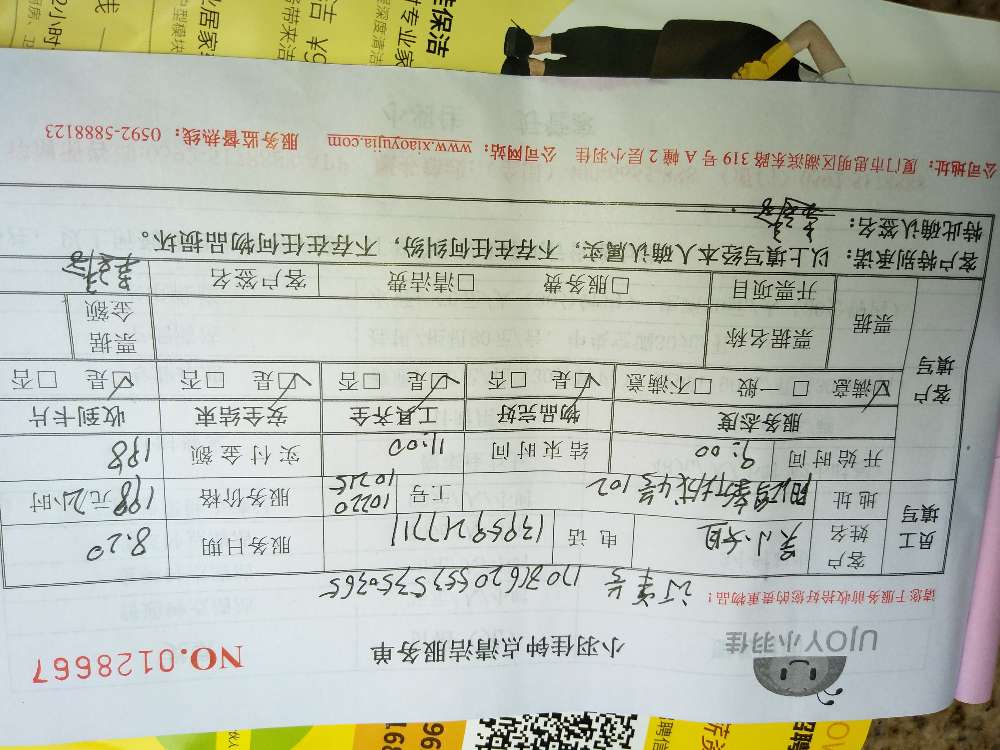 UJOY小羽佳
小羽佳钟点清洁服务单
NO.0128667
请您于服务前收拾好您的贵重物品!
订单号 1703620553535750365
员工填写
客户姓名 吴小姐 电话 13959217711 服务日期 8.20
地址 阳台新城4号102 工号 10220 10215 服务价格 198元/2小时
开始时间 9:00 结束时间 11:00 实付金额 198
客户填写
服务态度 物品完好 工具齐全 安全结束 收到卡片
☑满意 □一般 □不满意 ☑是 □否 ☑是 □否 ☑是 □否 ☑是 □否
票据 票据名称 票据金额
开票项目 □服务费 □清洁费 客户签名
客户特别承诺:以上填写经本人确认属实,不存在任何纠纷,不存在任何物品损坏。
特此确认签名:
公司地址:厦门市思明区湖滨东路319号A幢2层小羽佳 公司网站:www.xiaoyujia.com 服务监督热线:0592-5888123